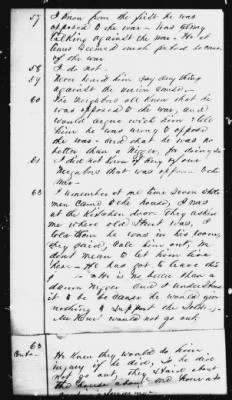 57 I knew from the first he was
opposed to the war - was always
talking against the war - He at
times seemed much pleased because
of the war
58 I do not -
59 Never heard him say any thing
against the union cause -
60 The Neighbors all knew that he
was opposed to the war, and
would argue with him & tell
him he was wrong to oppose
the war - and that he was no
better than a Nigger, for doing so
61 I did not know of any of our
Neighbors that was opposed to the
war -
63 I remember at one time Seven White
men Came to the house, I was
at the Kitchen door They asked
me where old Hunt was, I
told them he was in his room,
they said, Call him out, we
dont mean to let him live
here - He has got to leave this
He is no better than a
damn Nigger and I understand
it to be because he would give
nothing to support the Soldiers
Mr Hunt wanted not go out
63
He knew they would do him
injury if he did, So he did
not go out, they staid about
the house about and hour